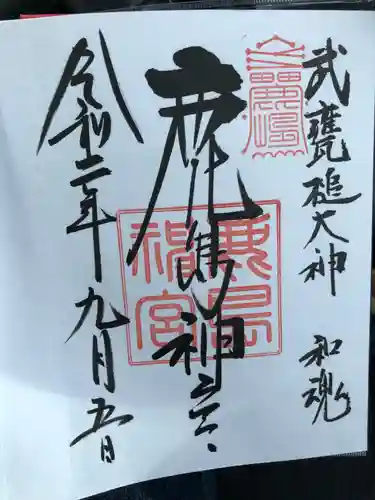 武甕槌大神 和魂
鹿島神宮
鹿島神宮
令和二年九月五日